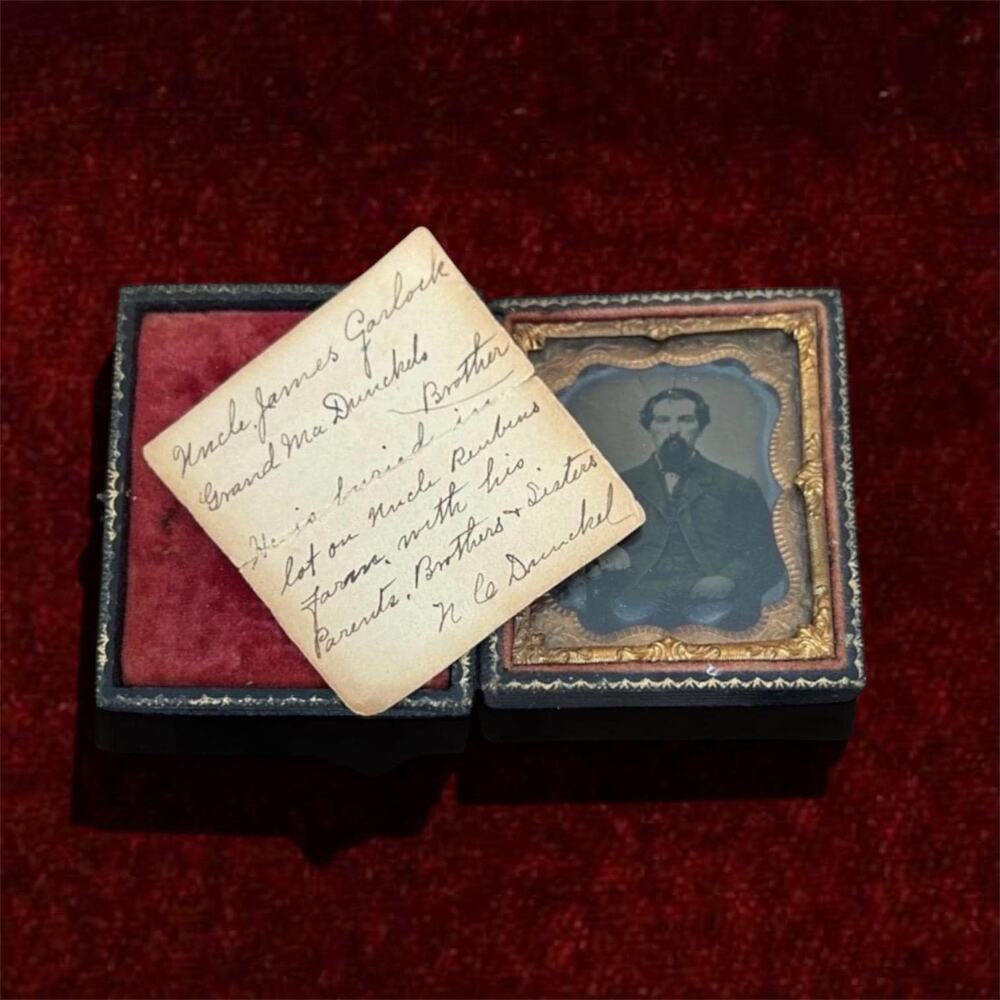 Uncle James Garlock
Grand Ma Dunckels
Brother
He is buried in
lot on Uncle Reubens
Farm. with his
Parents. Brothers + Sisters
N C Dunckel